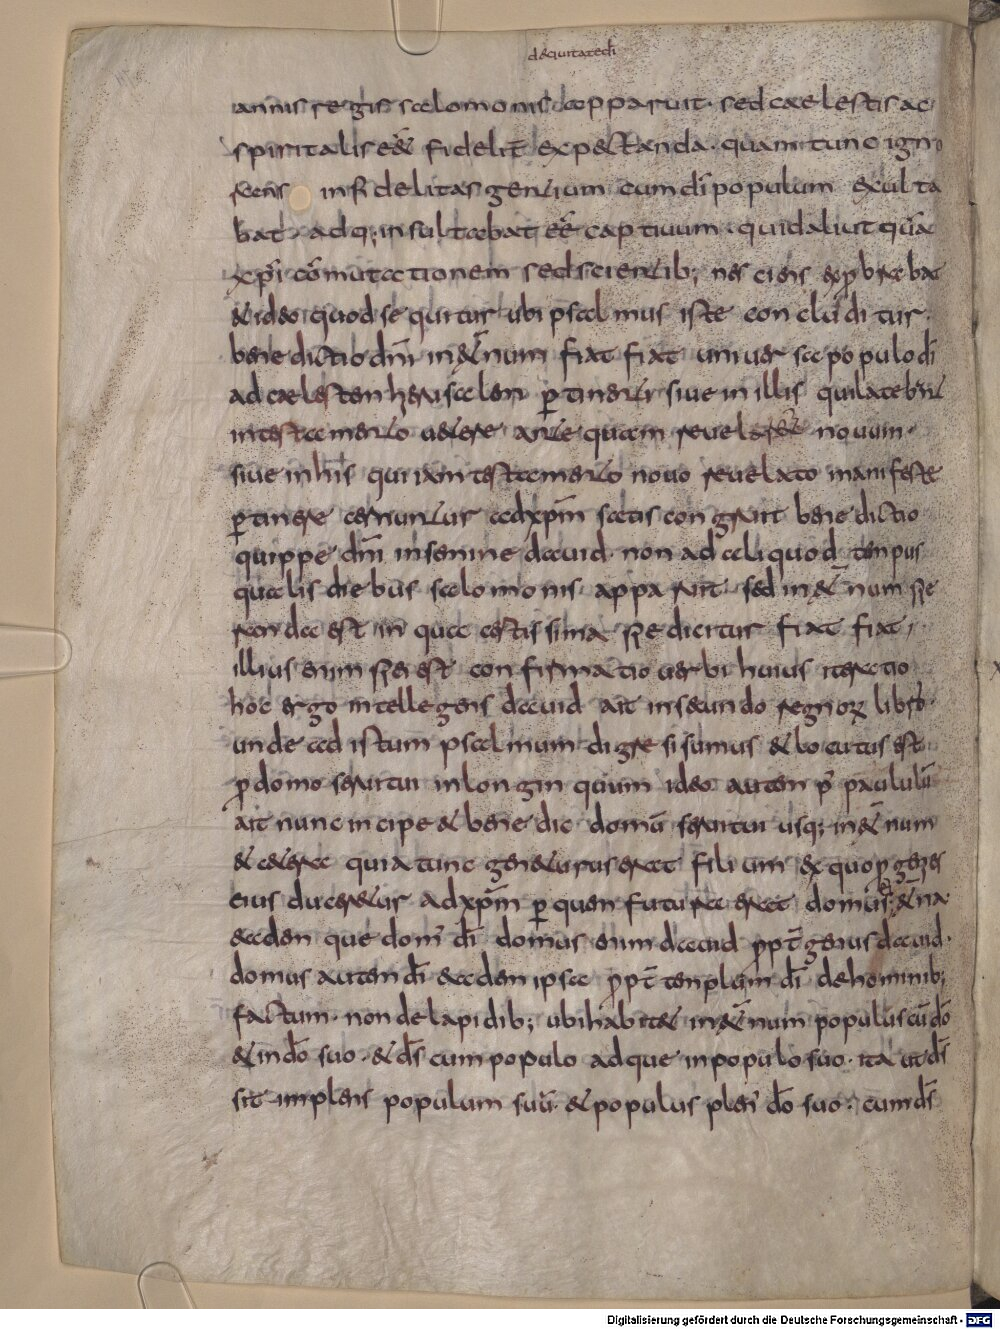 de ciuitate dī
annis regis salomonis apparuit · sed caelestis ac
spiritalis eēt fidelit̄ expectanda · quam tunc igno
rans infidelitas gentium cum dī populum exulta
bat · adq; insultabat eēe captiuum · quid aliut quā
xp̄i cōmutationem sed scientib; nesciens exprobrabat
et ideo quod sequitur ubi psalmus iste concluditur ·
benedictio dn̄i in aet̄num fiat fiat uniuersae populo dī
ad caelestem herusalem ꝑtinenti siue in illis qui latebant
in testamento uetere ante quam reuelaretur nouum ·
siue in his qui iam testamento nouo reuelato manifeste
ꝑtinere cernuntur ad xp̄m satis congruit benedictio
quippe dn̄i in semine dauid non ad aliquod tempus
qualis diebus salomonis apparuit sed in aet̄num spe
randa est in qua certissima spe dicitur fiat fiat ,
illius enim spei est confirmatio uerbi huius iteratio
hoc ergo intellegens dauid ait in secundo regnorꝝ libro ·
unde ad istum psalmum digressi sumus et locutus est
ꝓ domo serui tui in longinquum ideo autem p̄ paululū
ait nunc incipe et benedic domū serui tui usq; in aet̄num
et cetera quia tunc geniturus erat filium ex quo progenies
eius duceretur ad xp̄m ꝑ quem futura erat domus eius aet̄na
eadem que dom' dī domus enim dauid ꝓpt̄ genus dauid ·
domus autem dī eadem ipsa ꝓpt̄ templum dī de hominib;
factum · non de lapidib; ubi habitet in aet̄num populus cū dō
et in dō suo · et ds̄ cum populo adque in populo suo · ita ut ds̄
sit implens populum suū · et populus plen' dō suo · cum ds̄
Digitalisierung gefördert durch die Deutsche Forschungsgemeinschaft - DFG